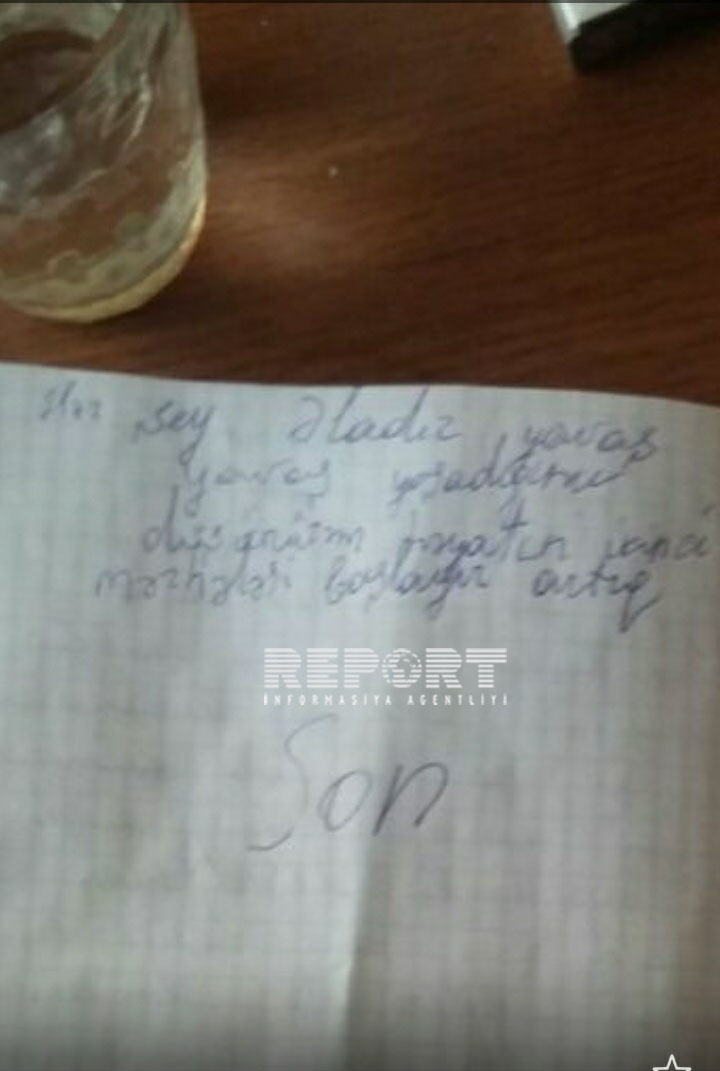 Hər şey əladır yavaş
yavaş yaşadığımı
düşünürəm həyatın ikinci
mərhələsi başlayır artıq
REPORT
İNFORMASİYA AGENTLİYİ
Son